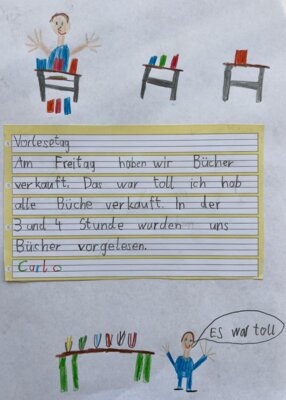 Vorlesetag
Am Freitag haben wir Bücher
verkauft. Das war toll ich hab
alle Büche verkauft. In der
3 und 4 Stunde wurden uns
Bücher vorgelesen.
Carlo
ES war toll